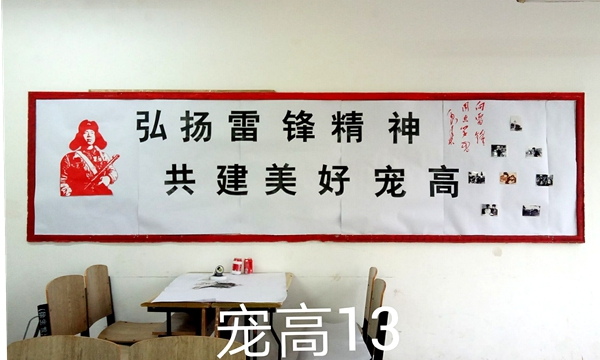 弘扬雷锋精神
共建美好宠高
向雷锋
同志学习
宠高13